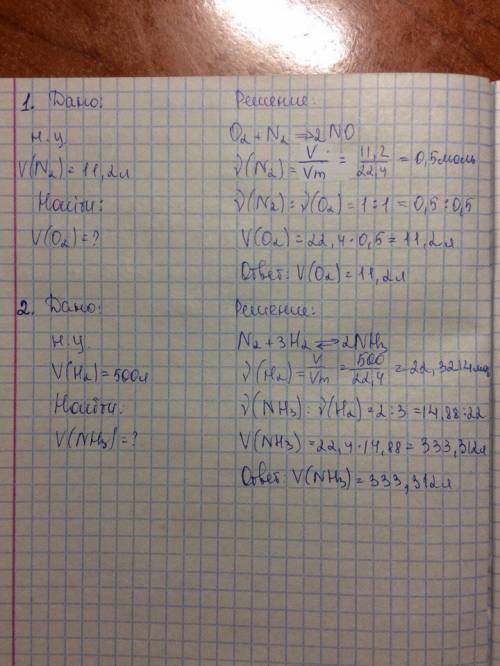 1. Дано:
н.у.
V(N₂) = 11,2л
Найти:
V(O₂) = ?
Решение:
O₂ + N₂ ⇒ 2NO
ν(N₂) = V/Vm = 11,2/22,4 = 0,5моль
ν(N₂) : ν(O₂) = 1 : 1 = 0,5 : 0,5
V(O₂) = 22,4 · 0,5 = 11,2л
Ответ: V(O₂) = 11,2л
2. Дано:
н.у.
V(H₂) = 500л
Найти:
V(NH₃) = ?
Решение:
N₂ + 3H₂ ⇄ 2NH₃
ν(H₂) = V/Vm = 500/22,4 = 22,3214моль
ν(NH₃) : ν(H₂) = 2 : 3 = 14,88 : 22
V(NH₃) = 22,4 · 14,88 = 333,312л
Ответ: V(NH₃) = 333,312л